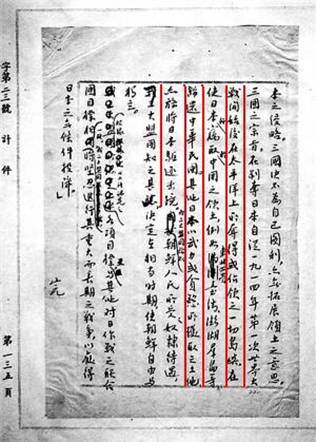 本之侵略。三國決不為自己圖利,亦無拓展領土之意思。
三國之宗旨,在剝奪日本自從一九一四年第一次世界大
戰開始後在太平洋上所奪得或佔領之一切島嶼,在
使日本竊取中國之領土,例如 澎湖群島等,
歸還中華民國,其他日本以武力或貪慾所攫取之土地,
亦務將日本驅逐出境。 朝鮮人民所受 奴隸待遇,
三大盟國知之 決定在相當時期,使朝鮮自由與
獨立。
各項目標與其他對日作戰之聯合
國目標相 堅忍進行其重大而長期之戰爭,以獲得
日本之無條件投降。」
完
字第二三號 計 件 第一三五頁